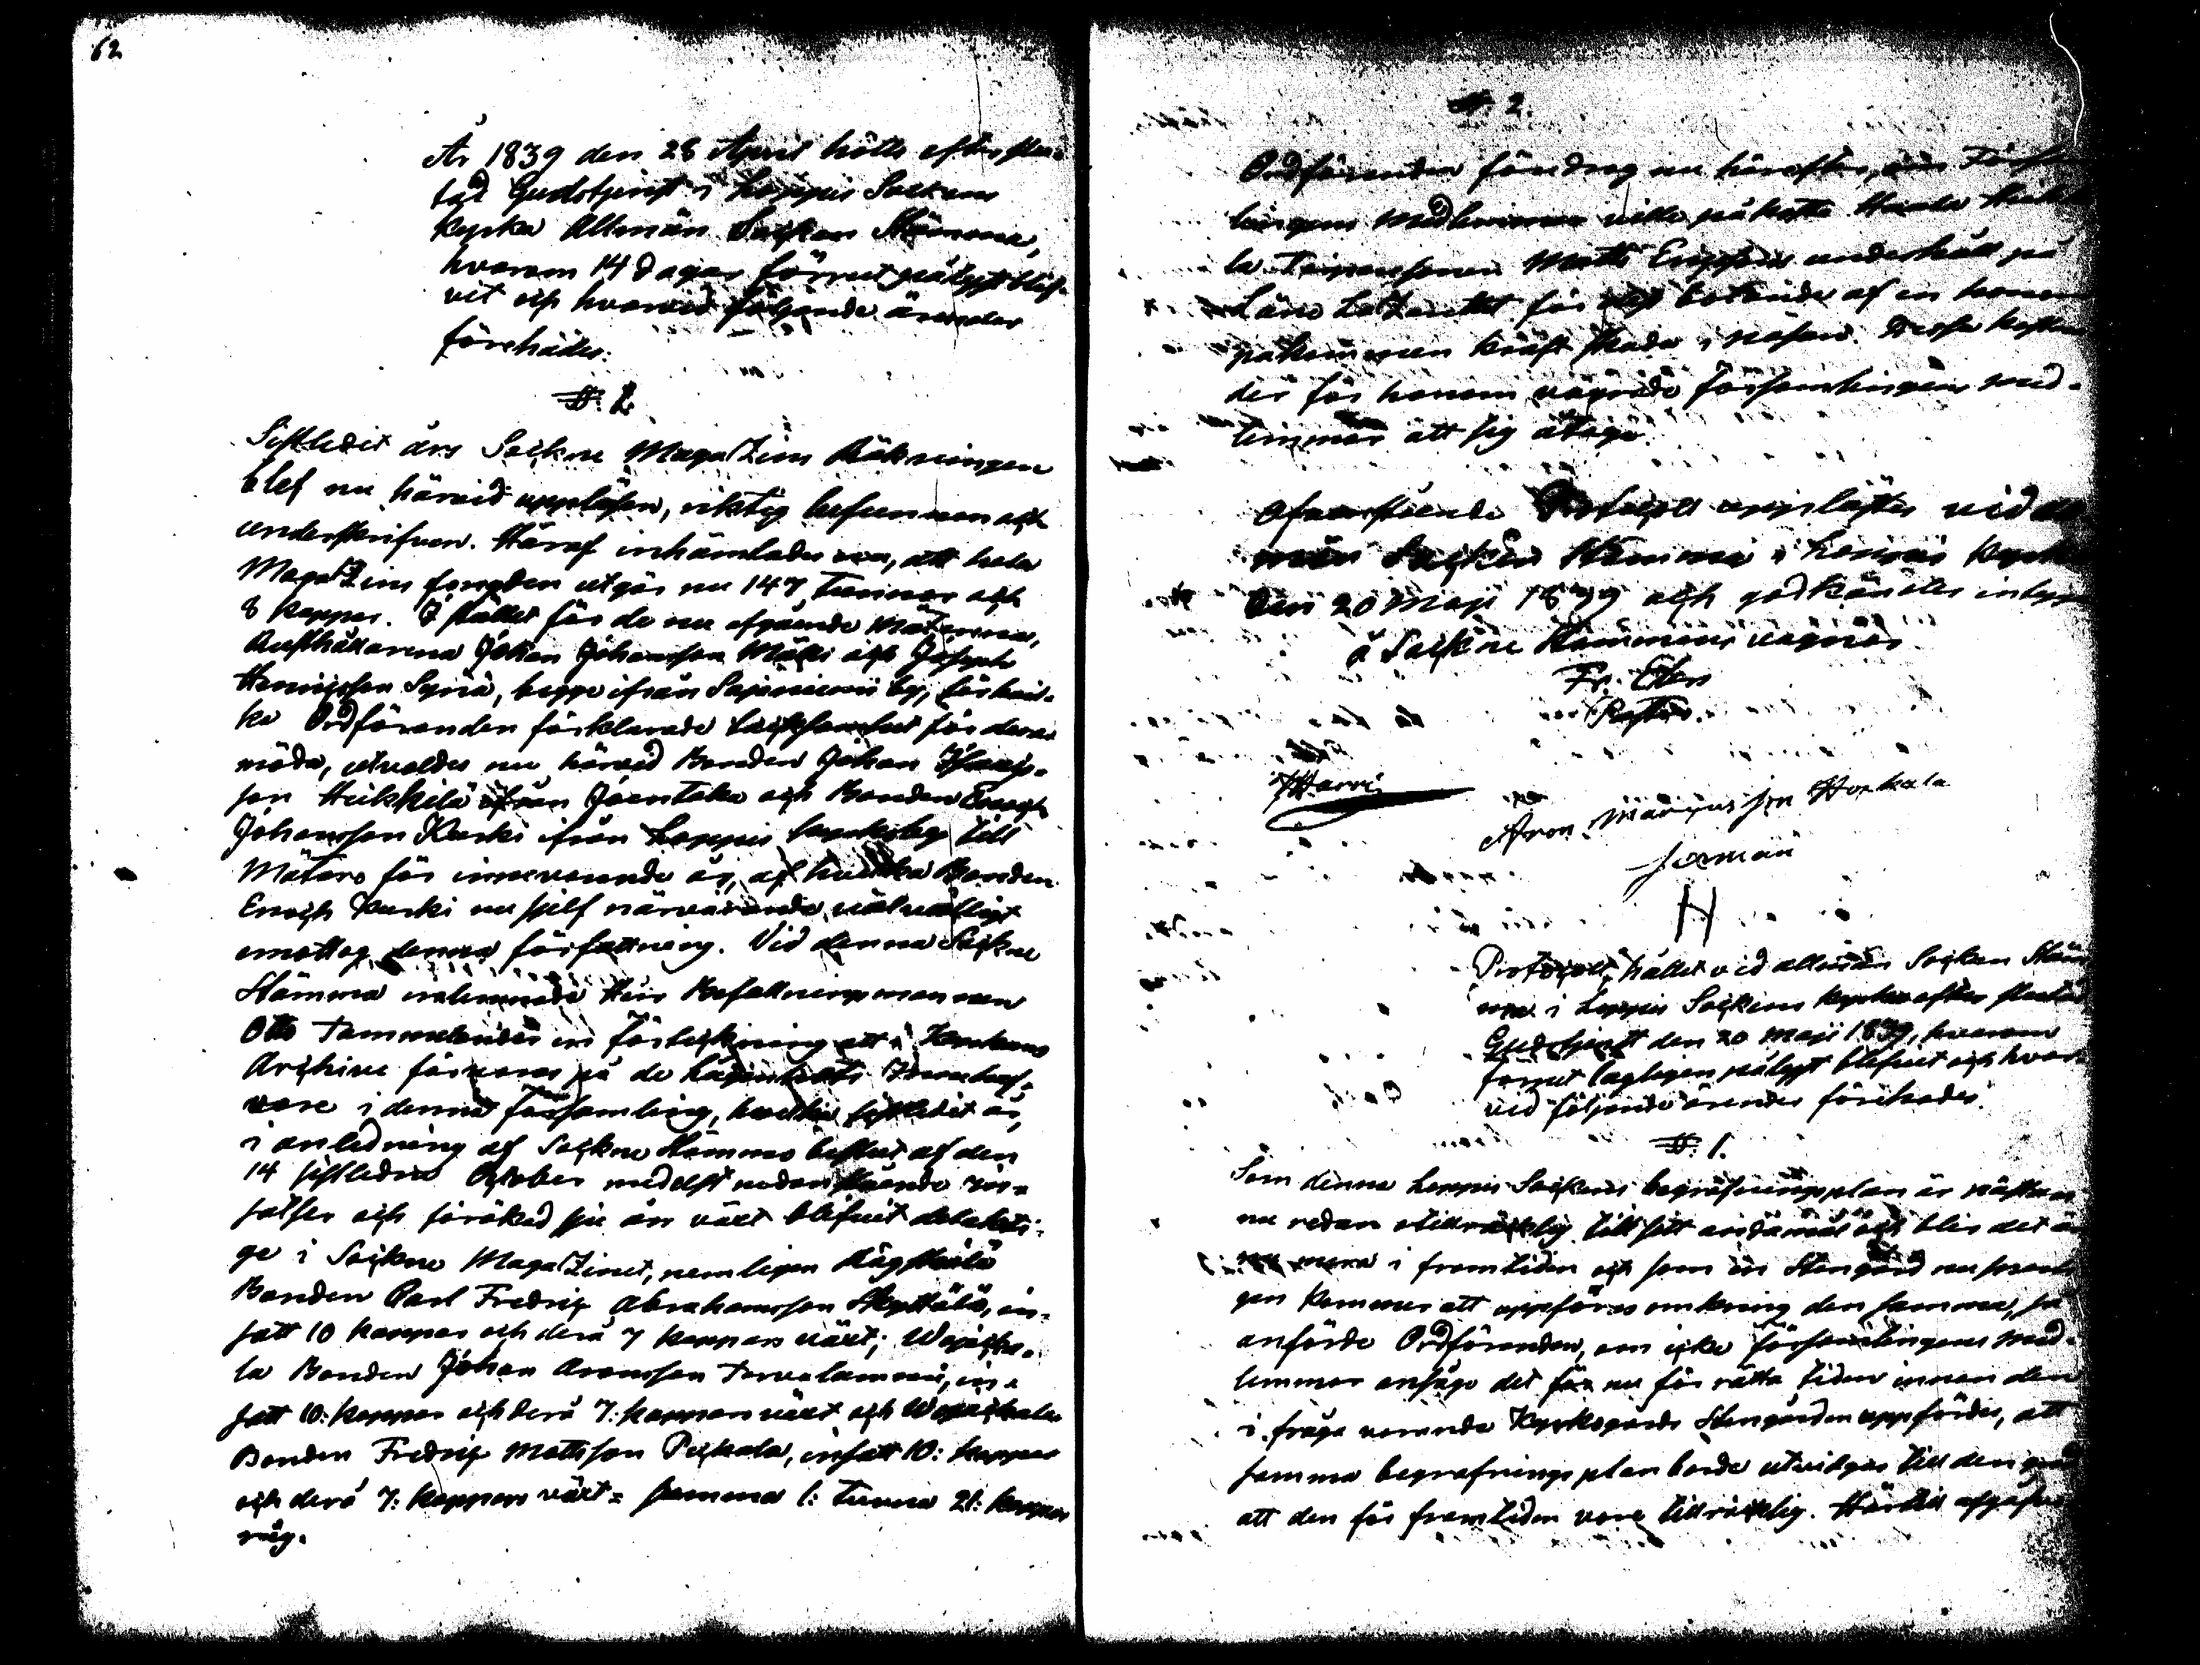 62
År 1839 den 28 April hölls efter slu-
tad Gudstjenst i Loppis Sockens
kyrka Allmän Socken Stämma,
hvarom 14 dagar förrut pålyst blif-
vit och hvarvid följande ärender
förehades:
§: 1
Sistledit års Sockne MagaZins Räkningen
blef nu härvid uppläsen, riktig befunnen och
underskrifven. Häraf inhämtades, att hela
MagaZins fonden utgör nu 147 Tunnor och
8 kappar. I stället för de nu afgående Mätarena,
Austhållarena Johan Johansson Mäki och Joseph
Henricsson Syriä, begge ifrån Sajaniemi by,
ka Ordföranden förklarade tacksamhet för deras
möda, utvaldes nu härvid Bonden Johan
son Heikkilä ifrån Joentaka och Bonden Enoch
Johansson Kaski ifrån Loppis by till
Mätare för innevarande år, af hvilka Bonden
Enoch Kaski nu sjelf närvarande välvilligt
emottog denna författning. Vid denna Sockne
Stämma inlemnade Herr Befallningsmannen
Otto Tammelander en förteckning att i
Archive förvaras på de
vare i denna församling, hvilka sistledit år,
i anledning af Sockne Stämmo beslut af den
14 sistledne October medelst nedanstående in-
satser och förökad sju års växt blifvit delakti-
ge i Sockne MagaZinet, nemligen
Bonden Carl Fredric Abrahamsson Skyttälä, in-
satt 10 kappar och derå 7 kappars växt;
la Bonden Johan Aronsson Tervalammi, in-
satt 10: kappar och derå 7: kappars växt och
Bonden Fredric Mattsson Peckala, insatt 10: kappar
och derå 7: kappars växt = summa 1: Tunna 21: kappar
råg.
§. 2.
Ordföranden föredrog nu härefter, om Försam
lingens Medlemmar ville påkosta
la Torparsonen Matts Ericsson underhåll på
Läne LaZarettet för botande af en honom
påkommen kräft skada i näsan. Dessa kostna
der för honom vägrade församlingens med-
lemmar att sig åtaga.
Ofvanstående Protocoll upplästes vid all
män Socken Stämma i Loppis kyrka
den 20 Maji 1839 och godkändes intygar
å Sockne Stämmans vägnar
Fr.
Pastor.
Aron Marcusson Honkala
H
Protocoll, hållet vid allmän Socken Stäm
ma i Loppis Sockens kyrka efter slutad
Gudstjenst den 20 Maji 1839, hvarom
förrut lagligen pålyst blifvit och hvar-
vid följande ärender förehades.
§. 1.
Som denna Loppis Sockens begrafningsplan är nästan
nu redan otillräcklig till sitt ändamål och blir det än
nu mera i framtiden och som en Stengård nu
gen kommer att uppföras omkring den samma, så
anförde Ordföranden, om icke församlingens med-
lemmar ansågo det nu för rätta tiden innan den
i fråga varande Kyrkogårds Stengården uppfördes, att
samma begrafningsplan borde utvidgas till den grad
att den för framtiden vore tillräcklig. Härtill afgåfvo